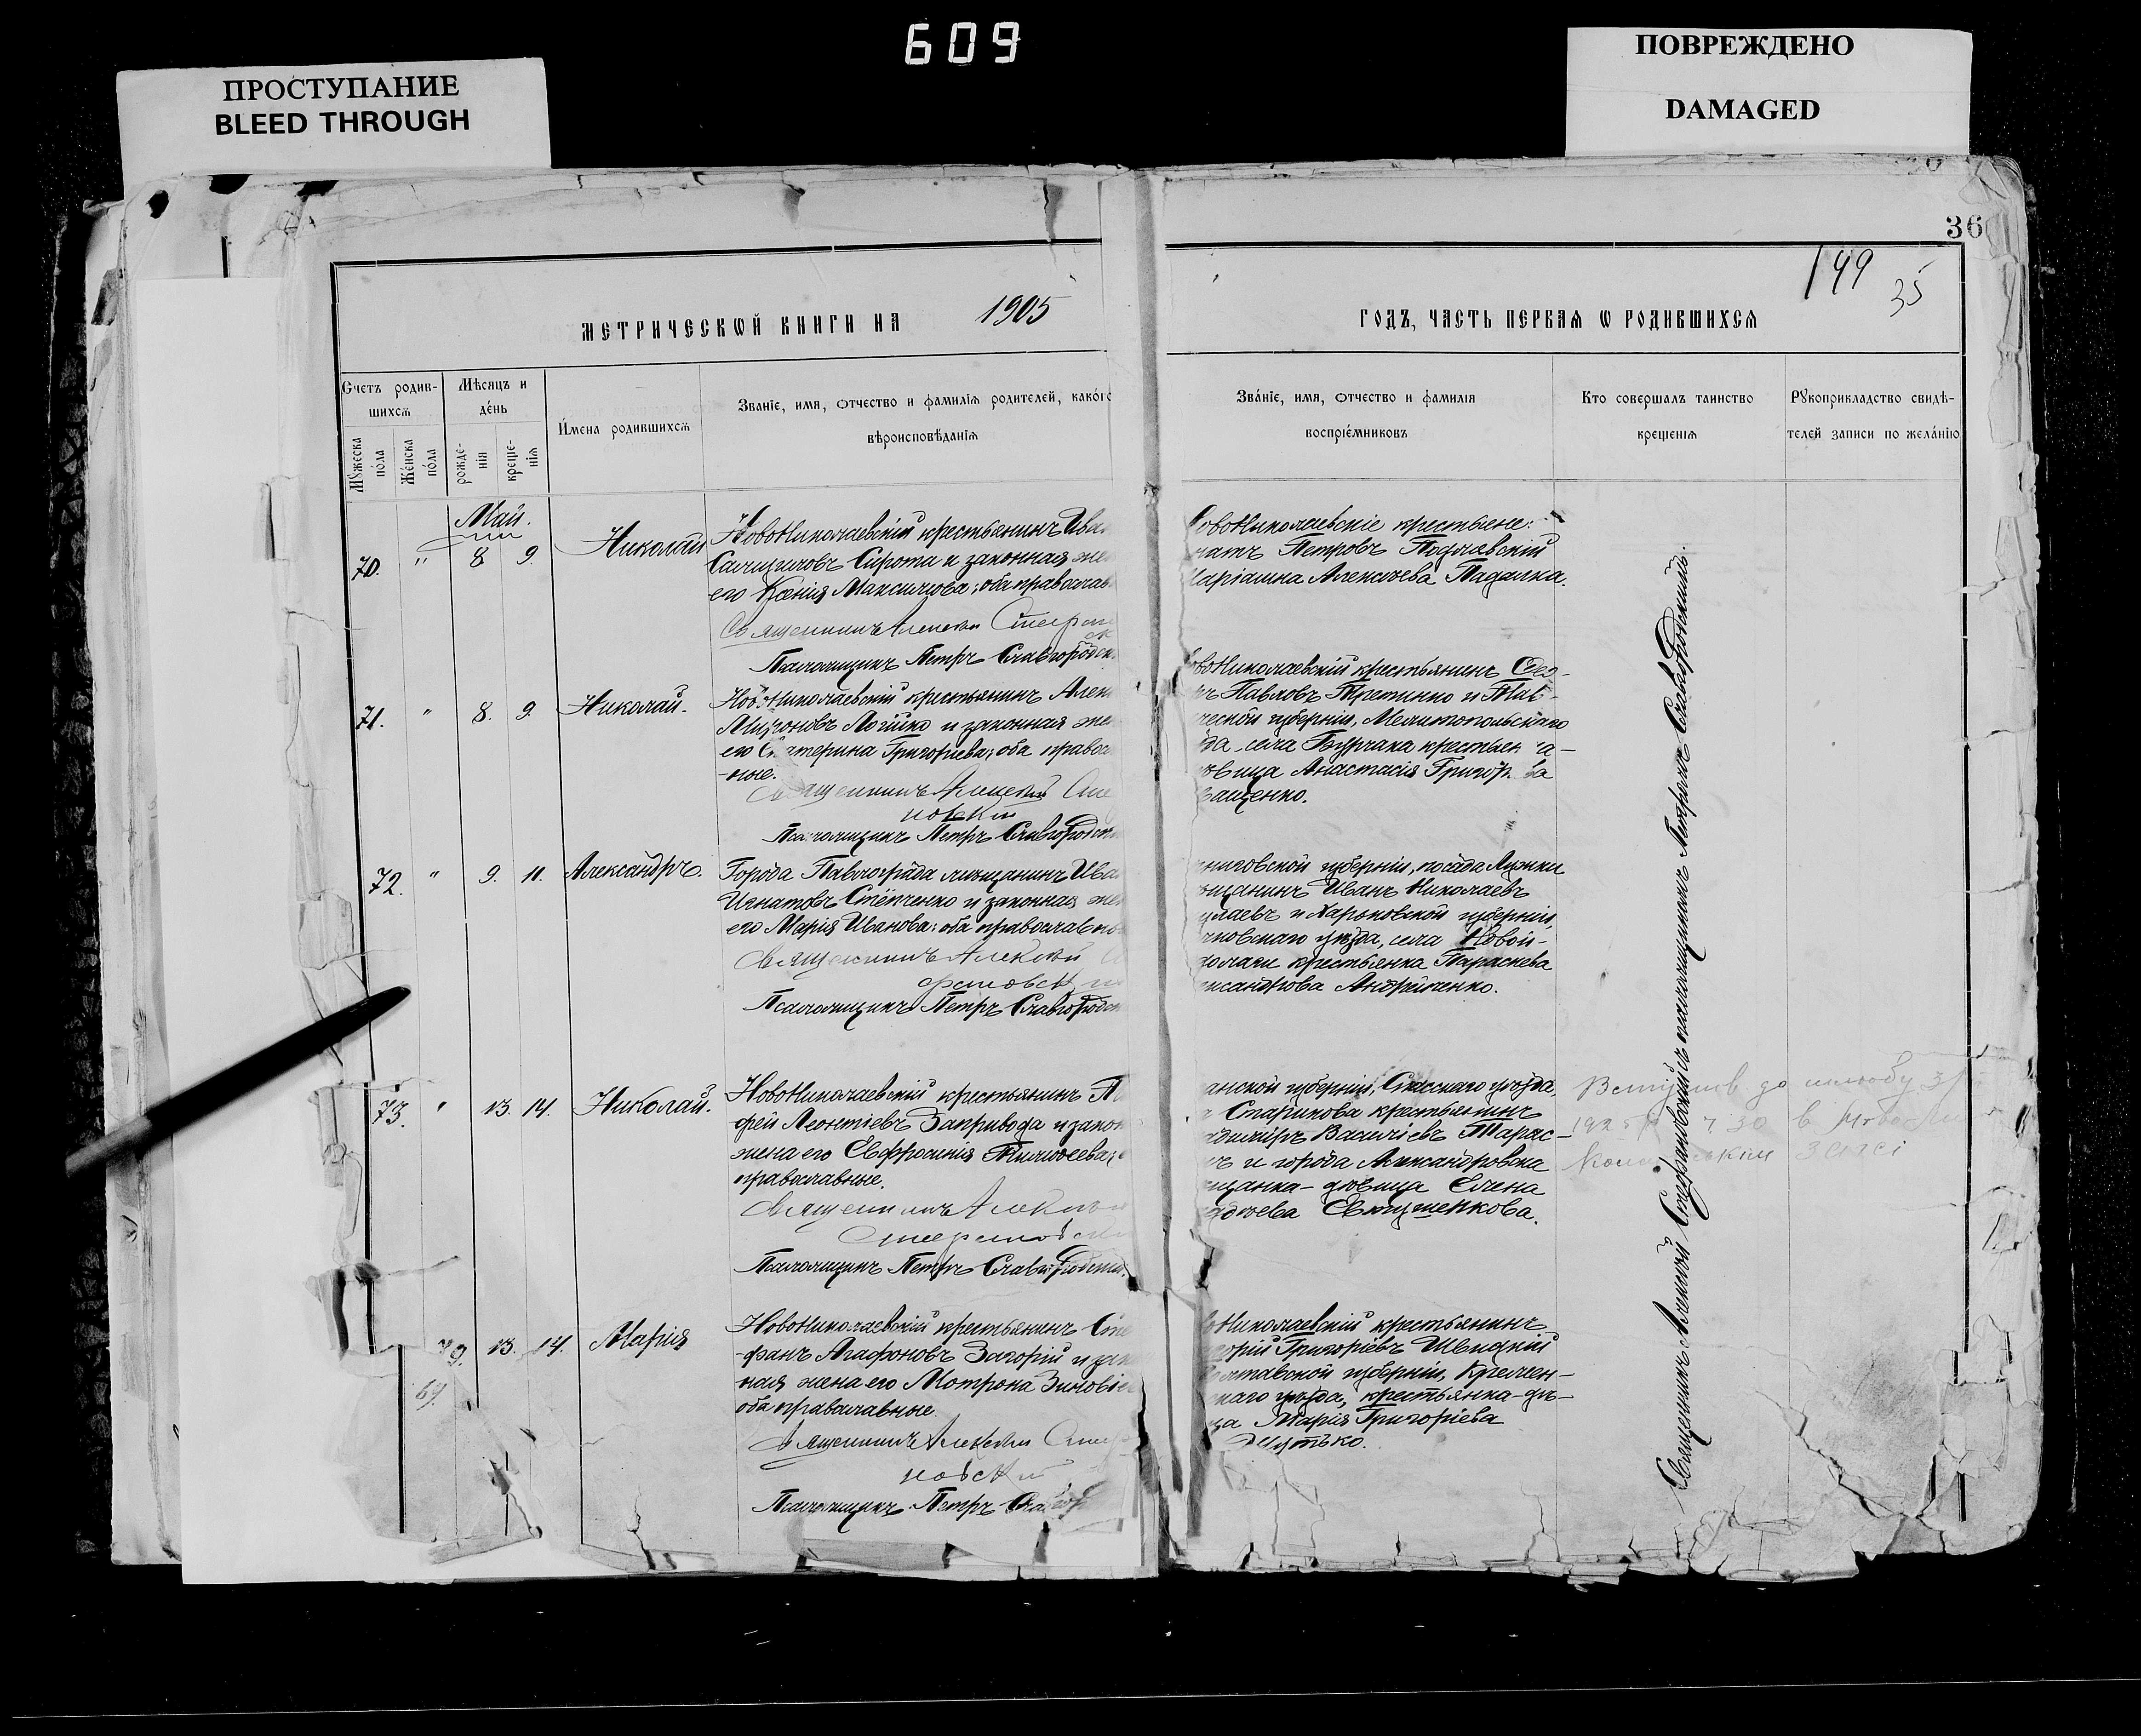 609
ПРОСТУПАНИЕ
BLEED THROUGH
ПОВРЕЖДЕНО
DAMAGED
36
149
35
МЕТРИЧЕСКѠЙ КНИГИ НА 1905
ГОДЪ, ЧАСТЬ ПЕРВАЯ Ѡ РОДИВШИХСЯ
Счетъ родив-
шихся
Мужеска
пола
Женска
пола
Мѣсяцъ и
день
рожде-
нія
креще-
нія
Имена родившихся
Званіе, имя, отчество и фамилія родителей, какого
вѣроисповѣданія
Званіе, имя, отчество и фамилія
воспріемниковъ
Кто совершалъ таинство
крещенія
Рукоприкладство свидѣ-
телей записи по желанію
Май.
70. " 8 9. Николай
Новониколаевскій крестьянинъ Ива
Сирота и законная же
его Ксенія Максимова; оба православ
Священникъ Алексѣй
Псаломщикъ Петръ Славгородск
овониколаевскіе крестьяне:
натъ Петровъ Подгаевскій
аріанна Алексѣева Падалка.
71. " 8. 9. Николай.
Новониколаевскій крестьянинъ Алек
Мироновъ Логийко и законная же
его Екатерина Григорьева; оба правос
-ные.
Священникъ Алексѣй
новскій
Псаломщикъ Петръ Славгородск
овониколаевскій крестьянинъ Ѳео-
ръ Павловъ Третинко и Тав-
ческой губерніи, Мелитопольскаго
да, села Бурчака крестьян а-
вица Анастасія Григор ва
ващенко.
72. " 9. 11. Александръ.
Города Павлограда мѣщанинъ Ива
Игнатовъ Степченко и законная же
его Марія Иванова; оба православн
Священникъ Алексѣй
фановск
Псаломщикъ Петръ Славгородск
ниговской губерніи, посада Лужки
ѣщанинъ Иванъ Николаевъ
улаевъ и Харьковской губерніи,
ковскаго уѣзда, села Новой-
долаги крестьянка Параскева
ександрова Андрѣенко.
73. " 13. 14. Николай.
Новониколаевскій крестьянинъ
фей Леонтіевъ Запривода и закон
жена его Евфросинія Тимоѳеева;
православные.
Священникъ Алексѣй
Стефановск
Псаломщикъ Петръ Славгородскій.
анской губерніи, Спасскаго уѣзда,
Старикова крестьянинъ
адиміръ Василіевъ Тарас-
въ и города Александровска
щанка-дѣвица Елена
Евтушенкова.
Вступив до шлюбу
в
30
13. 14. Марія
69.
Новониколаевскій крестьянинъ Сте
-фанъ Агафоновъ Загорій и зак
ная жена его Мотрона Зиновіе
оба православные.
Священникъ Алексѣй Стеф
новскій
Псаломщикъ Петръ Славгор
вониколаевскій крестьянинъ
орій Григоріевъ Швидкій
лтавской губерніи, Кремен-
скаго уѣзда, крестьянка-дѣ-
ца Марія Григоріева
Священникъ Алексѣй Стефановскій съ псаломщикомъ Петромъ Славгородскимъ.